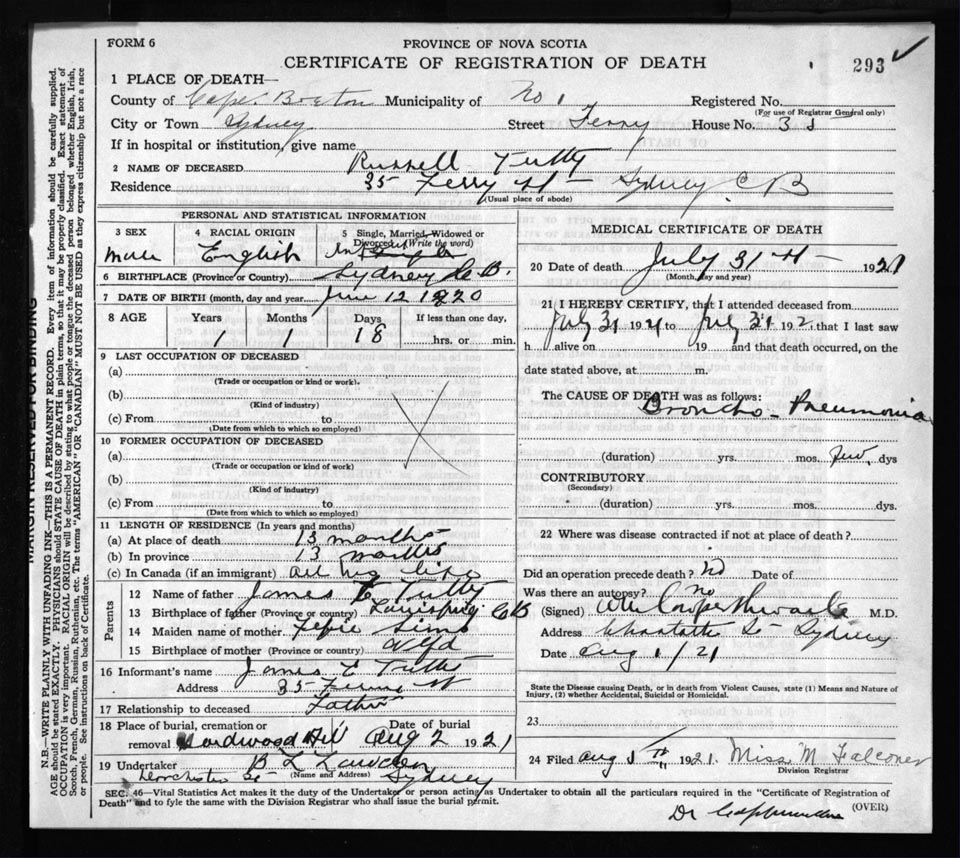 FORM 6
PROVINCE OF NOVA SCOTIA
CERTIFICATE OF REGISTRATION OF DEATH
293 ✓
1 PLACE OF DEATH—
County of Cape Breton Municipality of No 1 Registered No.
(For use of Registrar General only)
City or Town Sydney Street Ferry House No. 35
If in hospital or institution, give name
2 NAME OF DECEASED Russell Tutty
Residence 35 Ferry St — Sydney C B
(Usual place of abode)
PERSONAL AND STATISTICAL INFORMATION
3 SEX
male
4 RACIAL ORIGIN
English
5 Single, Married, Widowed or
Divorced (Write the word)
6 BIRTHPLACE (Province or Country) Sydney C.B.
7 DATE OF BIRTH (month, day and year) June 12 1920
8 AGE Years Months Days If less than one day,
1 1 18 hrs. or min.
9 LAST OCCUPATION OF DECEASED
(a)
(Trade or occupation or kind or work).
(b)
(Kind of industry)
(c) From to
(Date from which to which so employed)
10 FORMER OCCUPATION OF DECEASED
(a)
(Trade or occupation or kind of work)
(b)
(Kind of industry)
(c) From to
(Date from which to which so employed)
11 LENGTH OF RESIDENCE (In years and months)
(a) At place of death 13 months
(b) In province 13 months
(c) In Canada (if an immigrant) all his life
Parents
12 Name of father James E Tutty
13 Birthplace of father (Province or country) Louisburg C B
14 Maiden name of mother Sims
15 Birthplace of mother (Province or country) Nfld
16 Informant's name James E Tutty
Address 35 Ferry St
17 Relationship to deceased Father
18 Place of burial, cremation or Date of burial
removal Hardwood Hill Aug 2 1921
19 Undertaker B L
(Name and Address)
Dorchester St Sydney
MEDICAL CERTIFICATE OF DEATH
20 Date of death July 31st — 1921
(Month, day and year)
21 I HEREBY CERTIFY, that I attended deceased from
July 31 1921 to July 31 192 that I last saw
h alive on 19 and that death occurred, on the
date stated above, at m.
The CAUSE OF DEATH was as follows:
Broncho - Pneumonia
(duration) yrs. mos. few dys
CONTRIBUTORY
(Secondary)
(duration) yrs. mos. dys.
22 Where was disease contracted if not at place of death?
Did an operation precede death? no Date of
Was there an autopsy? no
(Signed) M.D.
Address Charlotte St Sydney
Date Aug 1/21
State the Disease causing Death, or in death from Violent Causes, state (1) Means and Nature of
Injury, (2) whether Accidental, Suicidal or Homicidal.
23
24 Filed Aug 1921. Miss M Falconer
Division Registrar
SEC. 46—Vital Statistics Act makes it the duty of the Undertaker or person acting as Undertaker to obtain all the particulars required in the "Certificate of Registration of
Death" and to fyle the same with the Division Registrar who shall issue the burial permit.
(OVER)
Dr
MARGIN RESERVED FOR BINDING
N.B.—WRITE PLAINLY WITH UNFADING INK—THIS IS A PERMANENT RECORD. Every item of information should be carefully supplied.
AGE should be stated EXACTLY. PHYSICIANS should STATE CAUSE OF DEATH in plain terms, so that it may be properly classified. Exact statement of
OCCUPATION is very important. RACIAL ORIGIN will be described by stating to what people or tongue the deceased person belonged whether English, Irish,
Scotch, French, German, Russian, Ruthenian, etc. The terms "AMERICAN" or "CANADIAN" MUST NOT BE USED as they express citizenship but not a race
or people. See instructions on back of Certificate.